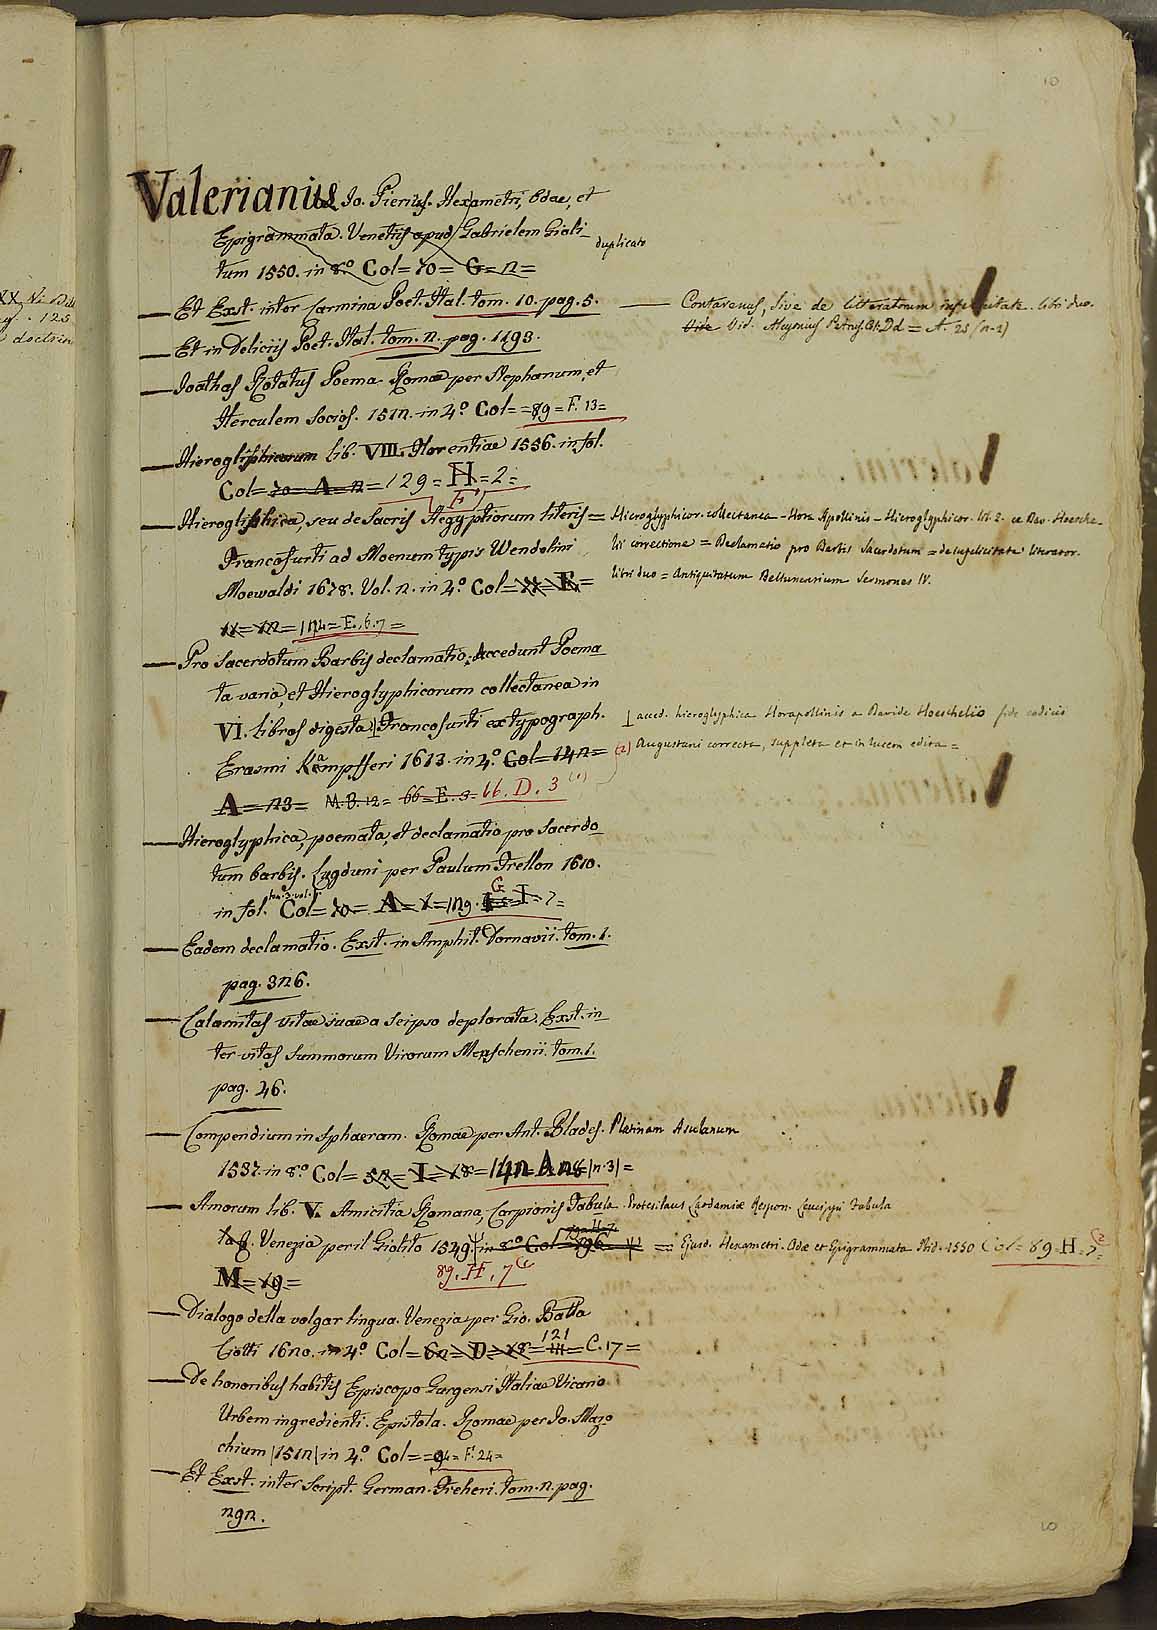 10
Valerianus Jo. Pierius. Hexametri, Odae, et
Epigrammata. Venetiis apud Gabrielem Gioli-
tum 1550. in 8.º Col = 70 = G = 12 =
duplicato
— Et Exst. inter Carmina Poet. Ital. tom. 10. pag. 5.
— Contarenus, sive de litteratorum infelicitate. libri duo.
Vide Vid. Alcyonius Petrus. Dd = A. 25 (n. 2)
— Et in Deliciis Poet. Ital. tom. 2. pag. 1193.
— Joathas Rotatus Poema. Romae per Stephanum, et
Herculem Socios. 1512. in 4.º Col = 89 = F. 13 =
— Hieroglyphicorum lib. VIII. Florentiae 1556. in fol.
Col = 70 = A = 12 = 129 = H = 2 =
F
— Hieroglyphica, seu de Sacris Aegyptiorum literis =
Francofurti ad Moenum typis Wendelini
Moewaldi 1678. Vol. 2. in 4.º Col = 11 = E =
= 124 = E. 6. 7 =
Hieroglyphicor. collectanea - Hora Apollinis - Hieroglyphicor. lib. 2. ex Dav. Hoesche-
lii correctione = Declamatio pro Barbis Sacerdotum = de infelicitate literator.
libri duo = Antiquitatum Bellunensium Sermones IV.
— Pro Sacerdotum Barbis declamatio; Accedunt Poema-
ta varia, et Hieroglyphicorum collectanea in
VI. libros digesta. Francofurti ex typograph.
Erasmi Kempfferi 1613. in 4.º Col = 142 =
A = 23 = M. B. 12 = 66 = E. 3 = 66. D. 3 (1)
accd. hieroglyphica Horapollinis a Davide Hoeschelio fide codicis
(2) Augustani correcta, suppleta et in lucem edita =
— Hieroglyphica, poemata, et declamatio pro Sacerdo-
tum barbis. Lugduni per Paulum Frellon 1610.
in fol. Col = 70 = A = 1 = 129. G I = 7 =
— Eadem declamatio. Exst. in Amphit. Dornavii. tom. 1.
pag. 326.
— Calamitas vitae suae a seipso deplorata. Exst. in-
ter vitas summorum Virorum Meuschenii. tom. 1.
pag. 46.
— Compendium in Sphaeram. Romae per Ant. Blades. Platinam Asulanum
1537. in 8.º Col = 52 = I = 18 = 142 A 28 (n. 3) =
— Amorum lib. V. Amicitia Romana, Carpionis Tabula. Protesilaus Laodamiae Respon. Leucippi Tabula
Venezia per il Giolito 1549. in 8.º Col = 896 = Ejusd. Hexametri. Odae et Epigrammata Ibid. 1550 Col = 89 = H = 7 =
M = 19 = 89. H. 7
— Dialogo della volgar lingua. Venezia per Gio. Batta
Ciotti 1620. in 4.º Col = 62 = D = 18 = 121 = C. 17 =
— De honoribus habitis Episcopo Gurgensi Italiae Vicario
Urbem ingredienti. Epistola. Romae per Jo. Mazo-
chium 1512 in 4.º Col = 94 = F. 24 =
— Et Exst. inter Script. German. Freheri. tom. 2. pag.
292.
10